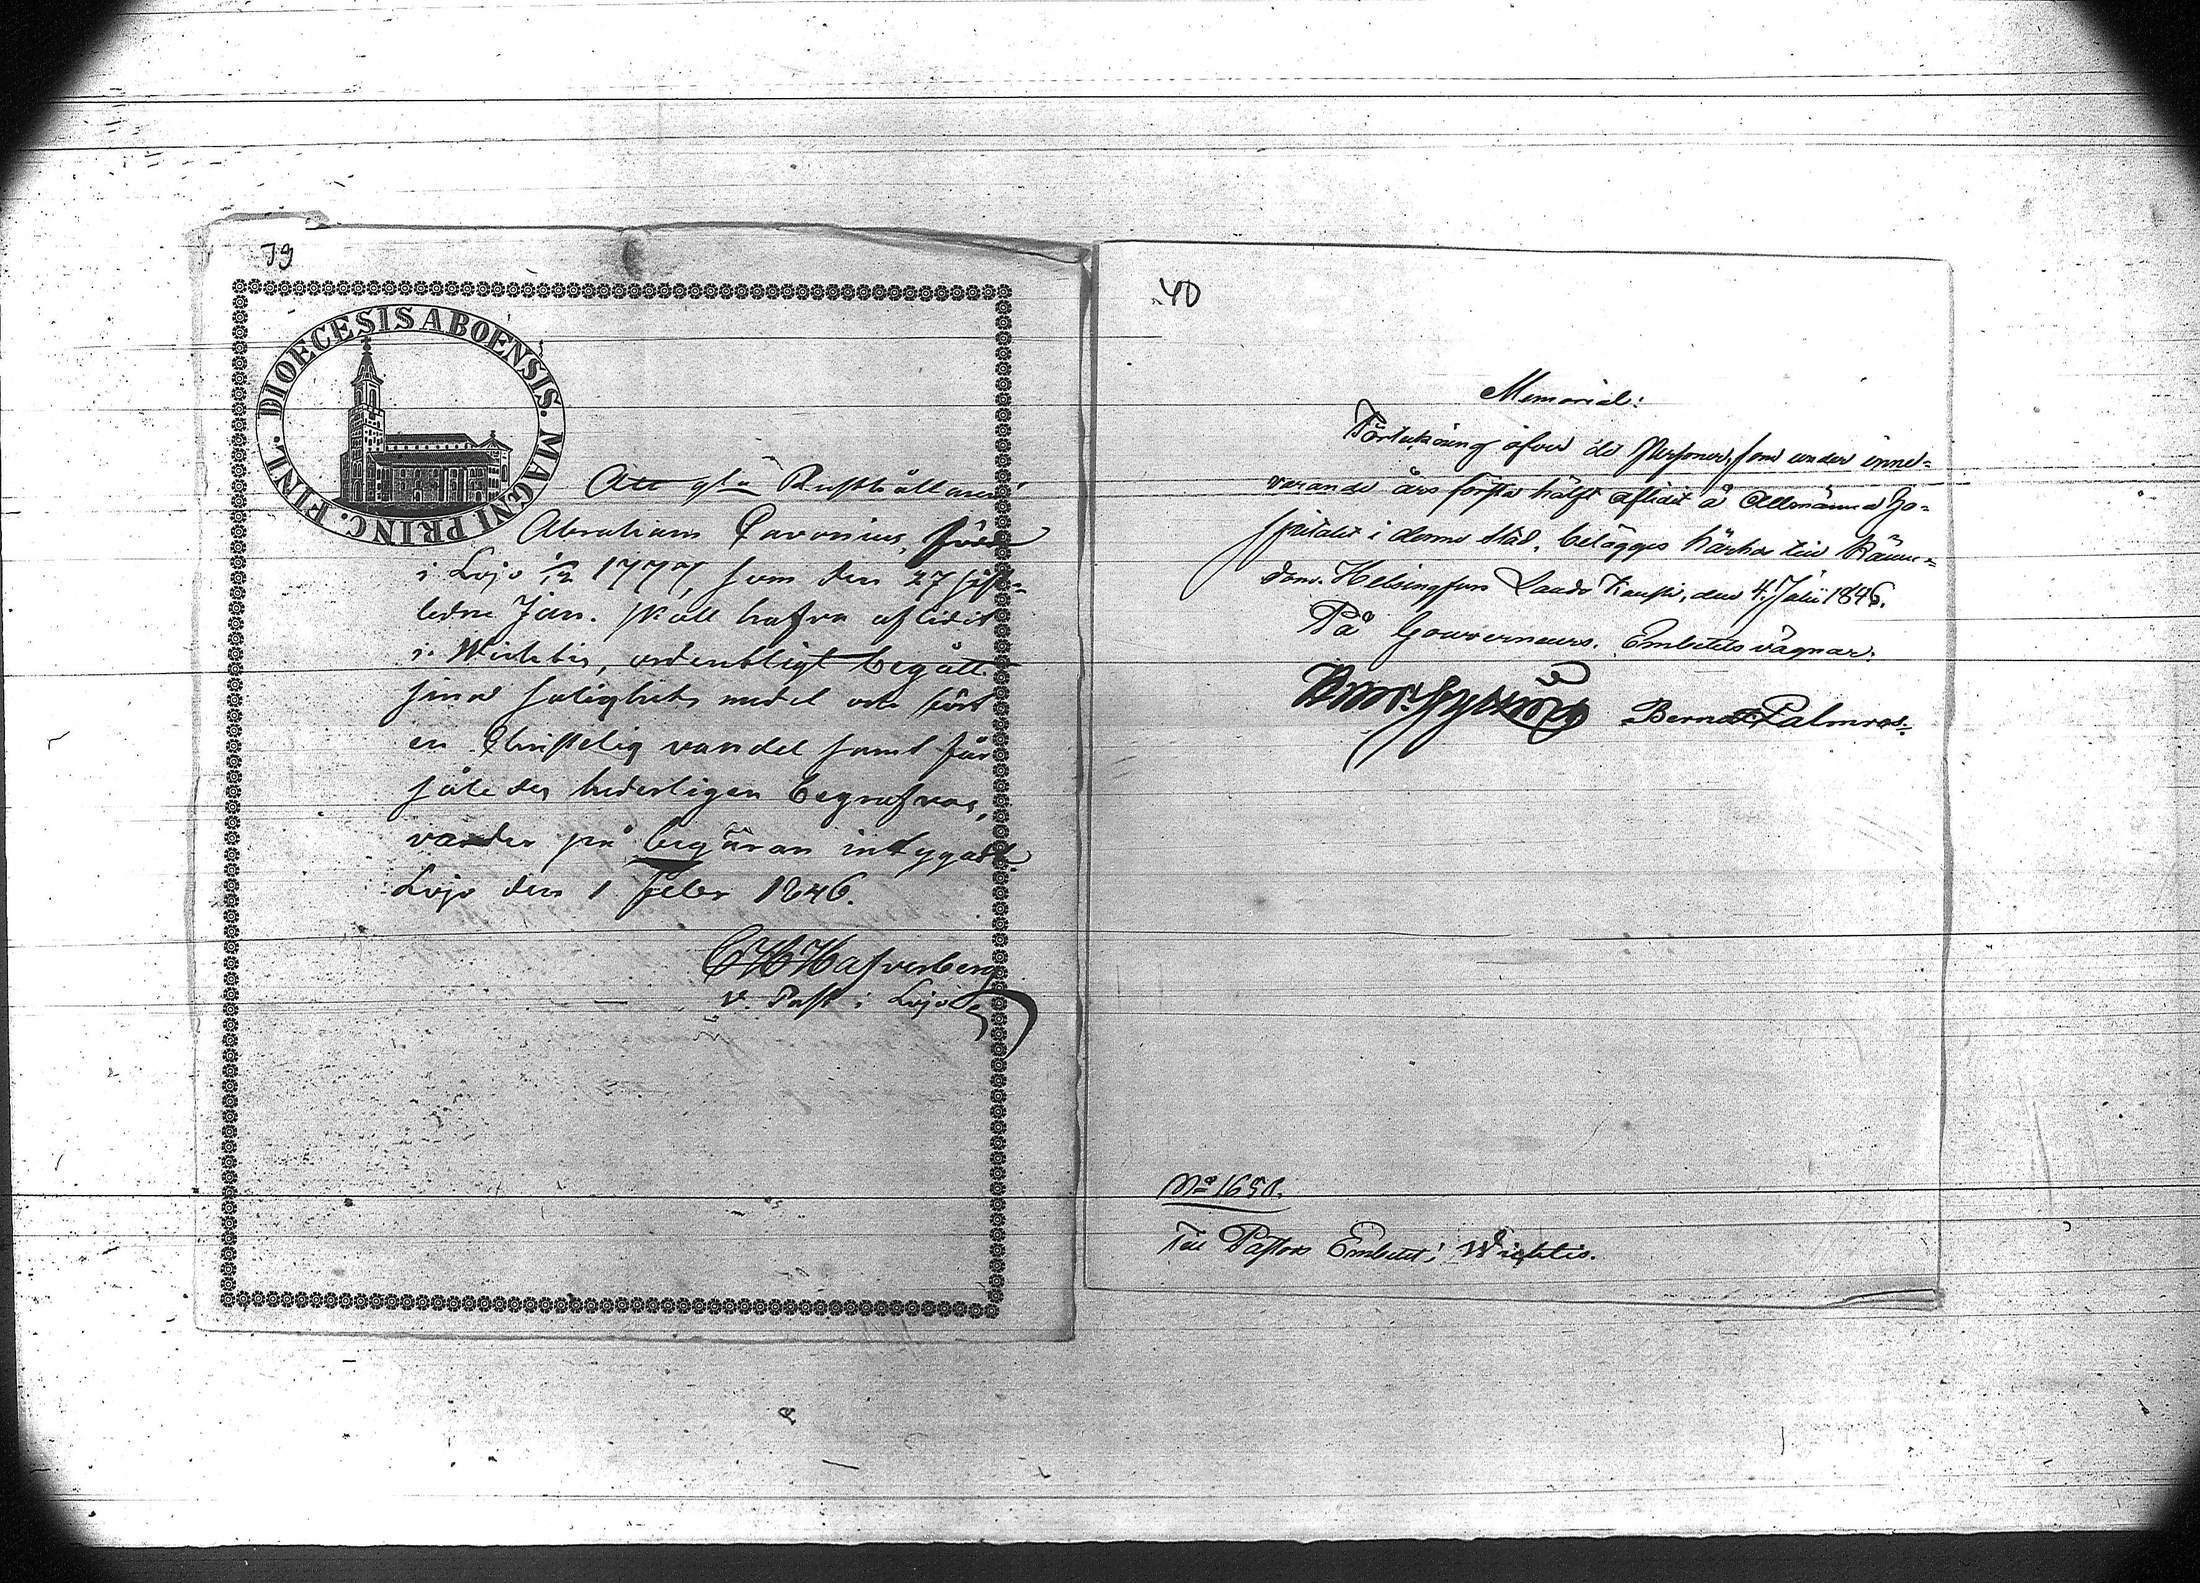 39
DIOECESIS ABOENSIS. MAGNI PRINC. FINL.
Att gle Rusthållaren
Abraham Pavonius, född
i Lojo 1777, som den 27 sist-
ledne Jan. skall hafva aflidit
i Wichtis, ordentligt begått
sina salighets medel och fört
en Christelig vandel samt får
således hederligen begrafvas,
varder på begäran intygadt.
Lojo den 1 Febr 1846.
v. Past i Lojo
40
Memorial:
Förteckning öfver de Personer, som under inne-
varande års första hälft aflidit å Allmänna Ho-
spitalet i denna Stad, belägges härhos till känne-
dom. Helsingfors Lands Kansli, den 4 Julii 1846.
På Gouverneurs Embetets vägnar:
Palmros.
No 1651.
Till Pastors Embetet i Wichtis.